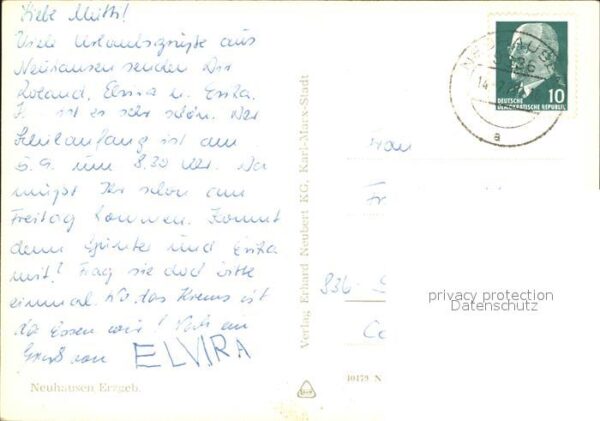 Liebe Mutti!
Viele Urlaubsgrüße aus
Neuhausen senden Dir
Roland, Elvira u. Erika.
ist es sehr schön. Der
Schulanfang ist am
5.9. um 8,30 Uhr. Da
müßt Ihr schon am
Freitag kommen. Kommt
denn Günter und Erika
mit? Frag sie doch bitte
einmal. das ist
da Essen wir! Noch ein
Gruß von ELVIRA
Neuhausen, Erzgeb.
Verlag Erhard Neubert KG, Karl-Marx-Stadt
10
DEUTSCHE
DEMOKRATISCHE REPUBLIK
a
Frau
Fr
836
privacy protection
Datenschutz
10179 N